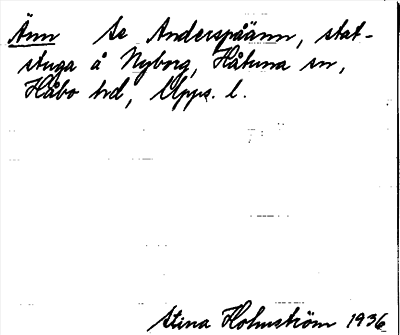 Änn Se Anderspäänn, stat-
stuga å Nyborg, Håtuna sn,
Håbo hd, Upps. l.
Stina Holmström 1936